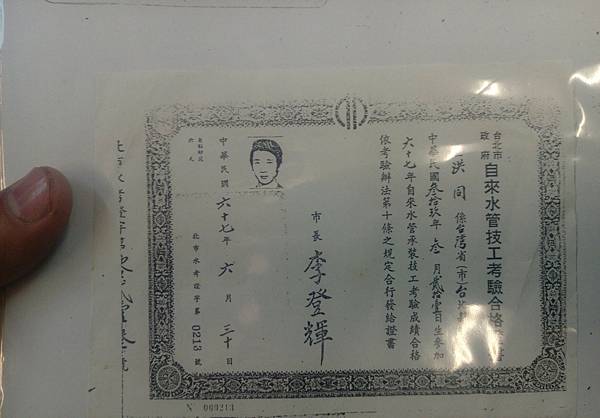 台北市政府 自來水管技工考驗合格
洪 同 係台灣省(市)台
中華民國叁拾玖年 叁 月貳拾壹日生參加
六十七年自來水管承裝技工考驗成績合格
依考驗辦法第十條之規定合行發給證書
市長 李登輝
中華民國 六十七年 六 月 三十 日
北市水考證字第 0213 號
N 000213